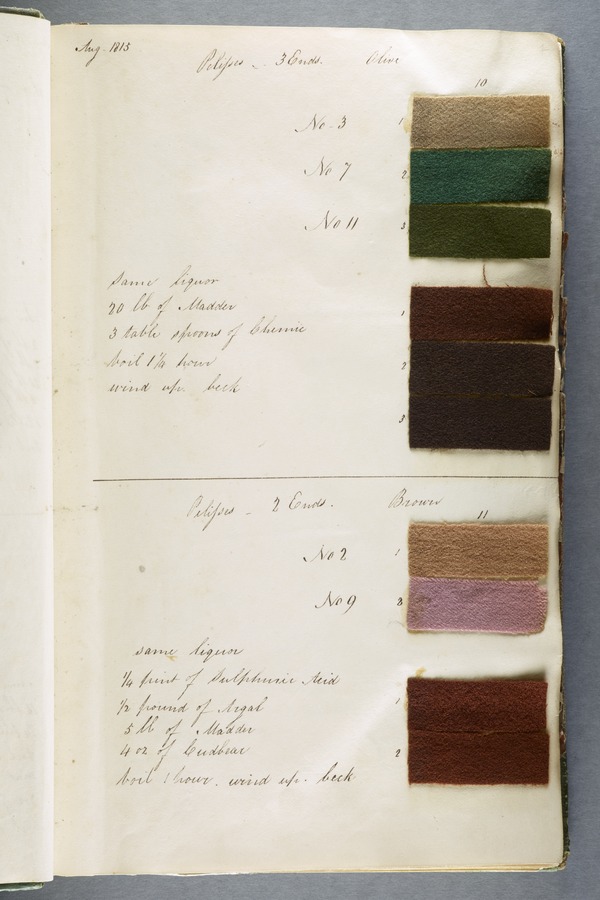 Aug. 1813
Pelisses - 3 Ends. Olive
10
No. 3 1
No 7 2
No 11 3
same liquor
20 lb of Madder 1
3 table spoons of Chemic
boil 1½ hour 2
wind up. beck
3
Pelisses - 2 Ends. Brown
11
No 2 1
No 9 2
same liquor
¼ pint of Sulphuric Acid
½ pound of Argal 1
5 lb of Madder
4 oz of Cudbear 2
boil 1 hour. wind up. beck